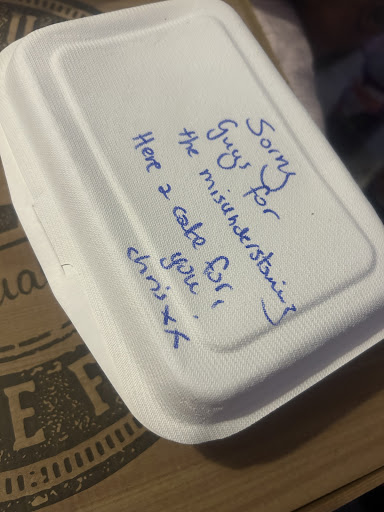 Sorry for
Guys
the misunderstaning
Here 2 cake for,
you!
chris xx
ua
EF